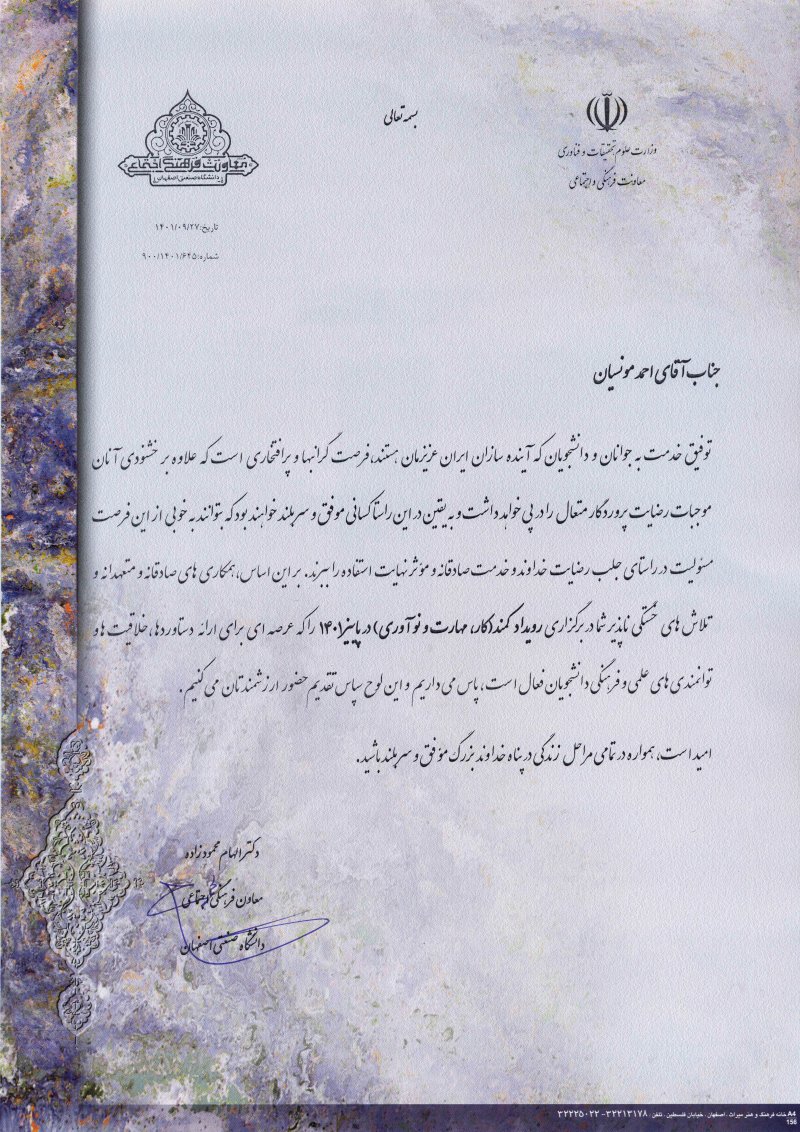 بسمه تعالی
وزارت علوم تحقیقات و فناوری
معاونت فرهنگی و اجتماعی
معاونت فرهنگی اجتماعی
دانشگاه صنعتی اصفهان
تاریخ: ۱۴۰۱/۰۹/۲۷
شماره: ۹۰۰/۱۴۰۱/۶۴۵
جناب آقای احمد مونسیان
توفیق خدمت به جوانان و دانشجویان که آینده سازان ایران عزیزمان هستند، فرصت گرانبها و پرافتخاری است که علاوه بر خشنودی آنان
موجبات رضایت پروردگار متعال را در پی خواهد داشت و به یقین در این راستا کسانی موفق و سربلند خواهند بود که بتوانند به خوبی از این فرصت
مسئولیت در راستای جلب رضایت خداوند و خدمت صادقانه و مؤثر نهایت استفاده را ببرند. بر این اساس، همکاری های صادقانه و متعهدانه و
تلاش های خستگی ناپذیر شما در برگزاری رویداد کمند (کار، مهارت و نوآوری) در پاییز ۱۴۰۱ را که عرصه ای برای ارائه دستاوردها، خلاقیت ها و
توانمندی های علمی و فرهنگی دانشجویان فعال است، پاس می داریم و این لوح سپاس تقدیم حضور ارزشمندتان می کنیم.
امید است، همواره در تمامی مراحل زندگی در پناه خداوند بزرگ موفق و سربلند باشید.
دکتر الهام محمودزاده
معاون فرهنگی و اجتماعی
دانشگاه صنعتی اصفهان
A4 خانه فرهنگ و هنر میراث . اصفهان . خیابان فلسطین . تلفن : ۳۲۲۱۳۱۷۸ - ۳۲۲۲۵۰۲۲
156